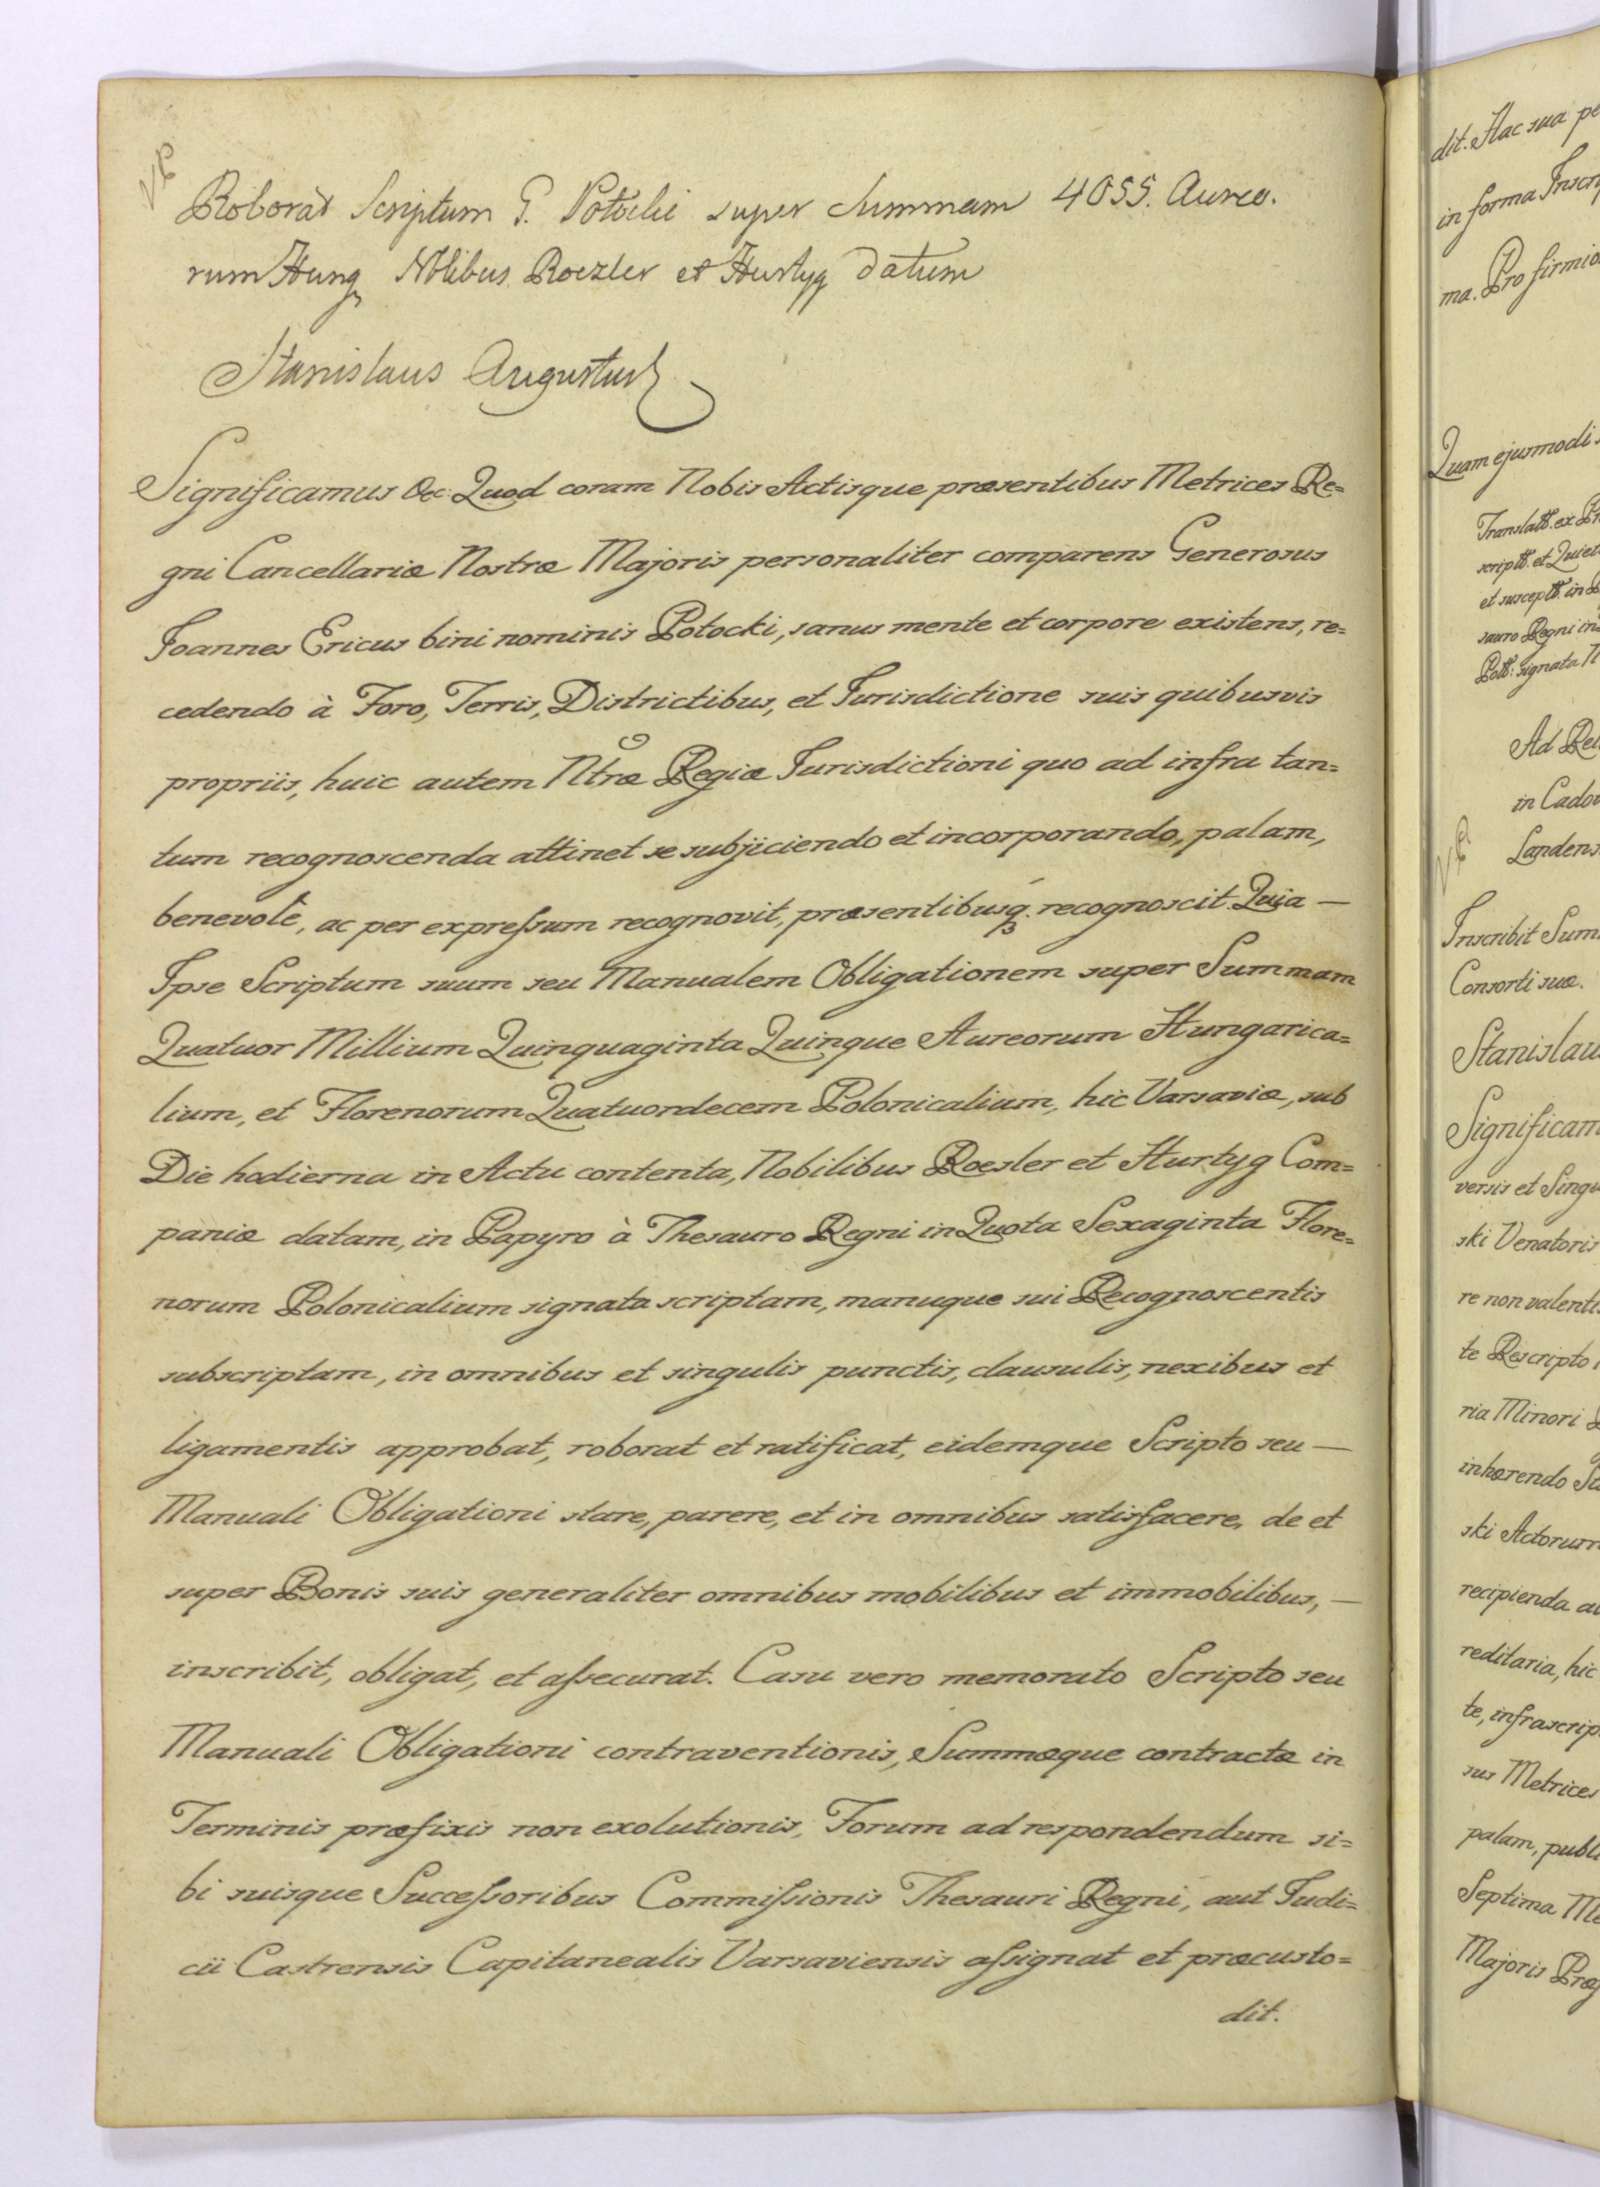 VP
Roborat Scriptum G. Potocki super Summam 4055. Aureo.
rum Hung Nblibus Roezler et Hurtyg datum
Stanislaus Augustus
Significamus &c: Quod coram Nobis Actisque præsentibus Metrices Re=
gni Cancellariæ Nostræ Majoris personaliter comparens Generosus
Joannes Ericus bini nominis Potocki, sanus mente et corpore existens, re=
cedendo à Foro, Terris, Districtibus, et Jurisdictione suis quibusvis
propriis, huic autem Ntræ Regiæ Jurisdictioni quo ad infra tan=
tum recognoscenda attinet se subjiciendo et incorporando, palam,
benevolè, ac per expressum recognovit, præsentibusq. recognoscit. Quia —
Ipse Scriptum suum seu Manualem Obligationem super Summam
Quatuor Millium Quinquaginta Quinque Aureorum Hungarica=
lium, et Florenorum Quatuordecem Polonicalium, hic Varsaviæ, sub
Die hodierna in Actu contenta, Nobilibus Roesler et Hurtyg Com=
paniæ datam, in Papyro à Thesauro Regni in Quota Sexaginta Flore=
norum Polonicalium signata scriptam, manuque sui Recognoscentis
subscriptam, in omnibus et singulis punctis, clausulis, nexibus et
ligamentis approbat, roborat et ratificat, eidemque Scripto seu —
Manuali Obligationi stare, parere, et in omnibus satisfacere, de et
super Bonis suis generaliter omnibus mobilibus et immobilibus, —
inscribit, obligat, et assecurat. Casu vero memorato Scripto seu
Manuali Obligationi contraventionis, Summæque contractæ in
Terminis præfixis non exolutionis, Forum ad respondendum si=
bi suisque Successoribus Commissionis Thesauri Regni, aut Judi=
cii Castrensis Capitanealis Varsaviensis assignat et præcusto=
dit.
dit. Hac sua
in forma
ma. Pro
Quam ejusmodi
Translatt. ex
scriptt. et
et susceptt. in
sauro Regni
Pott: signata
Ad
in
VP
Landens
Inscribit
Consorti suæ.
Stanislau
Significam
versis et
ski Venatoris
re non
te Rescripto
ria Minori
inhærendo
ski
recipienda
reditaria, hic
te,
sus Metrices
palam,
Septima
Majoris